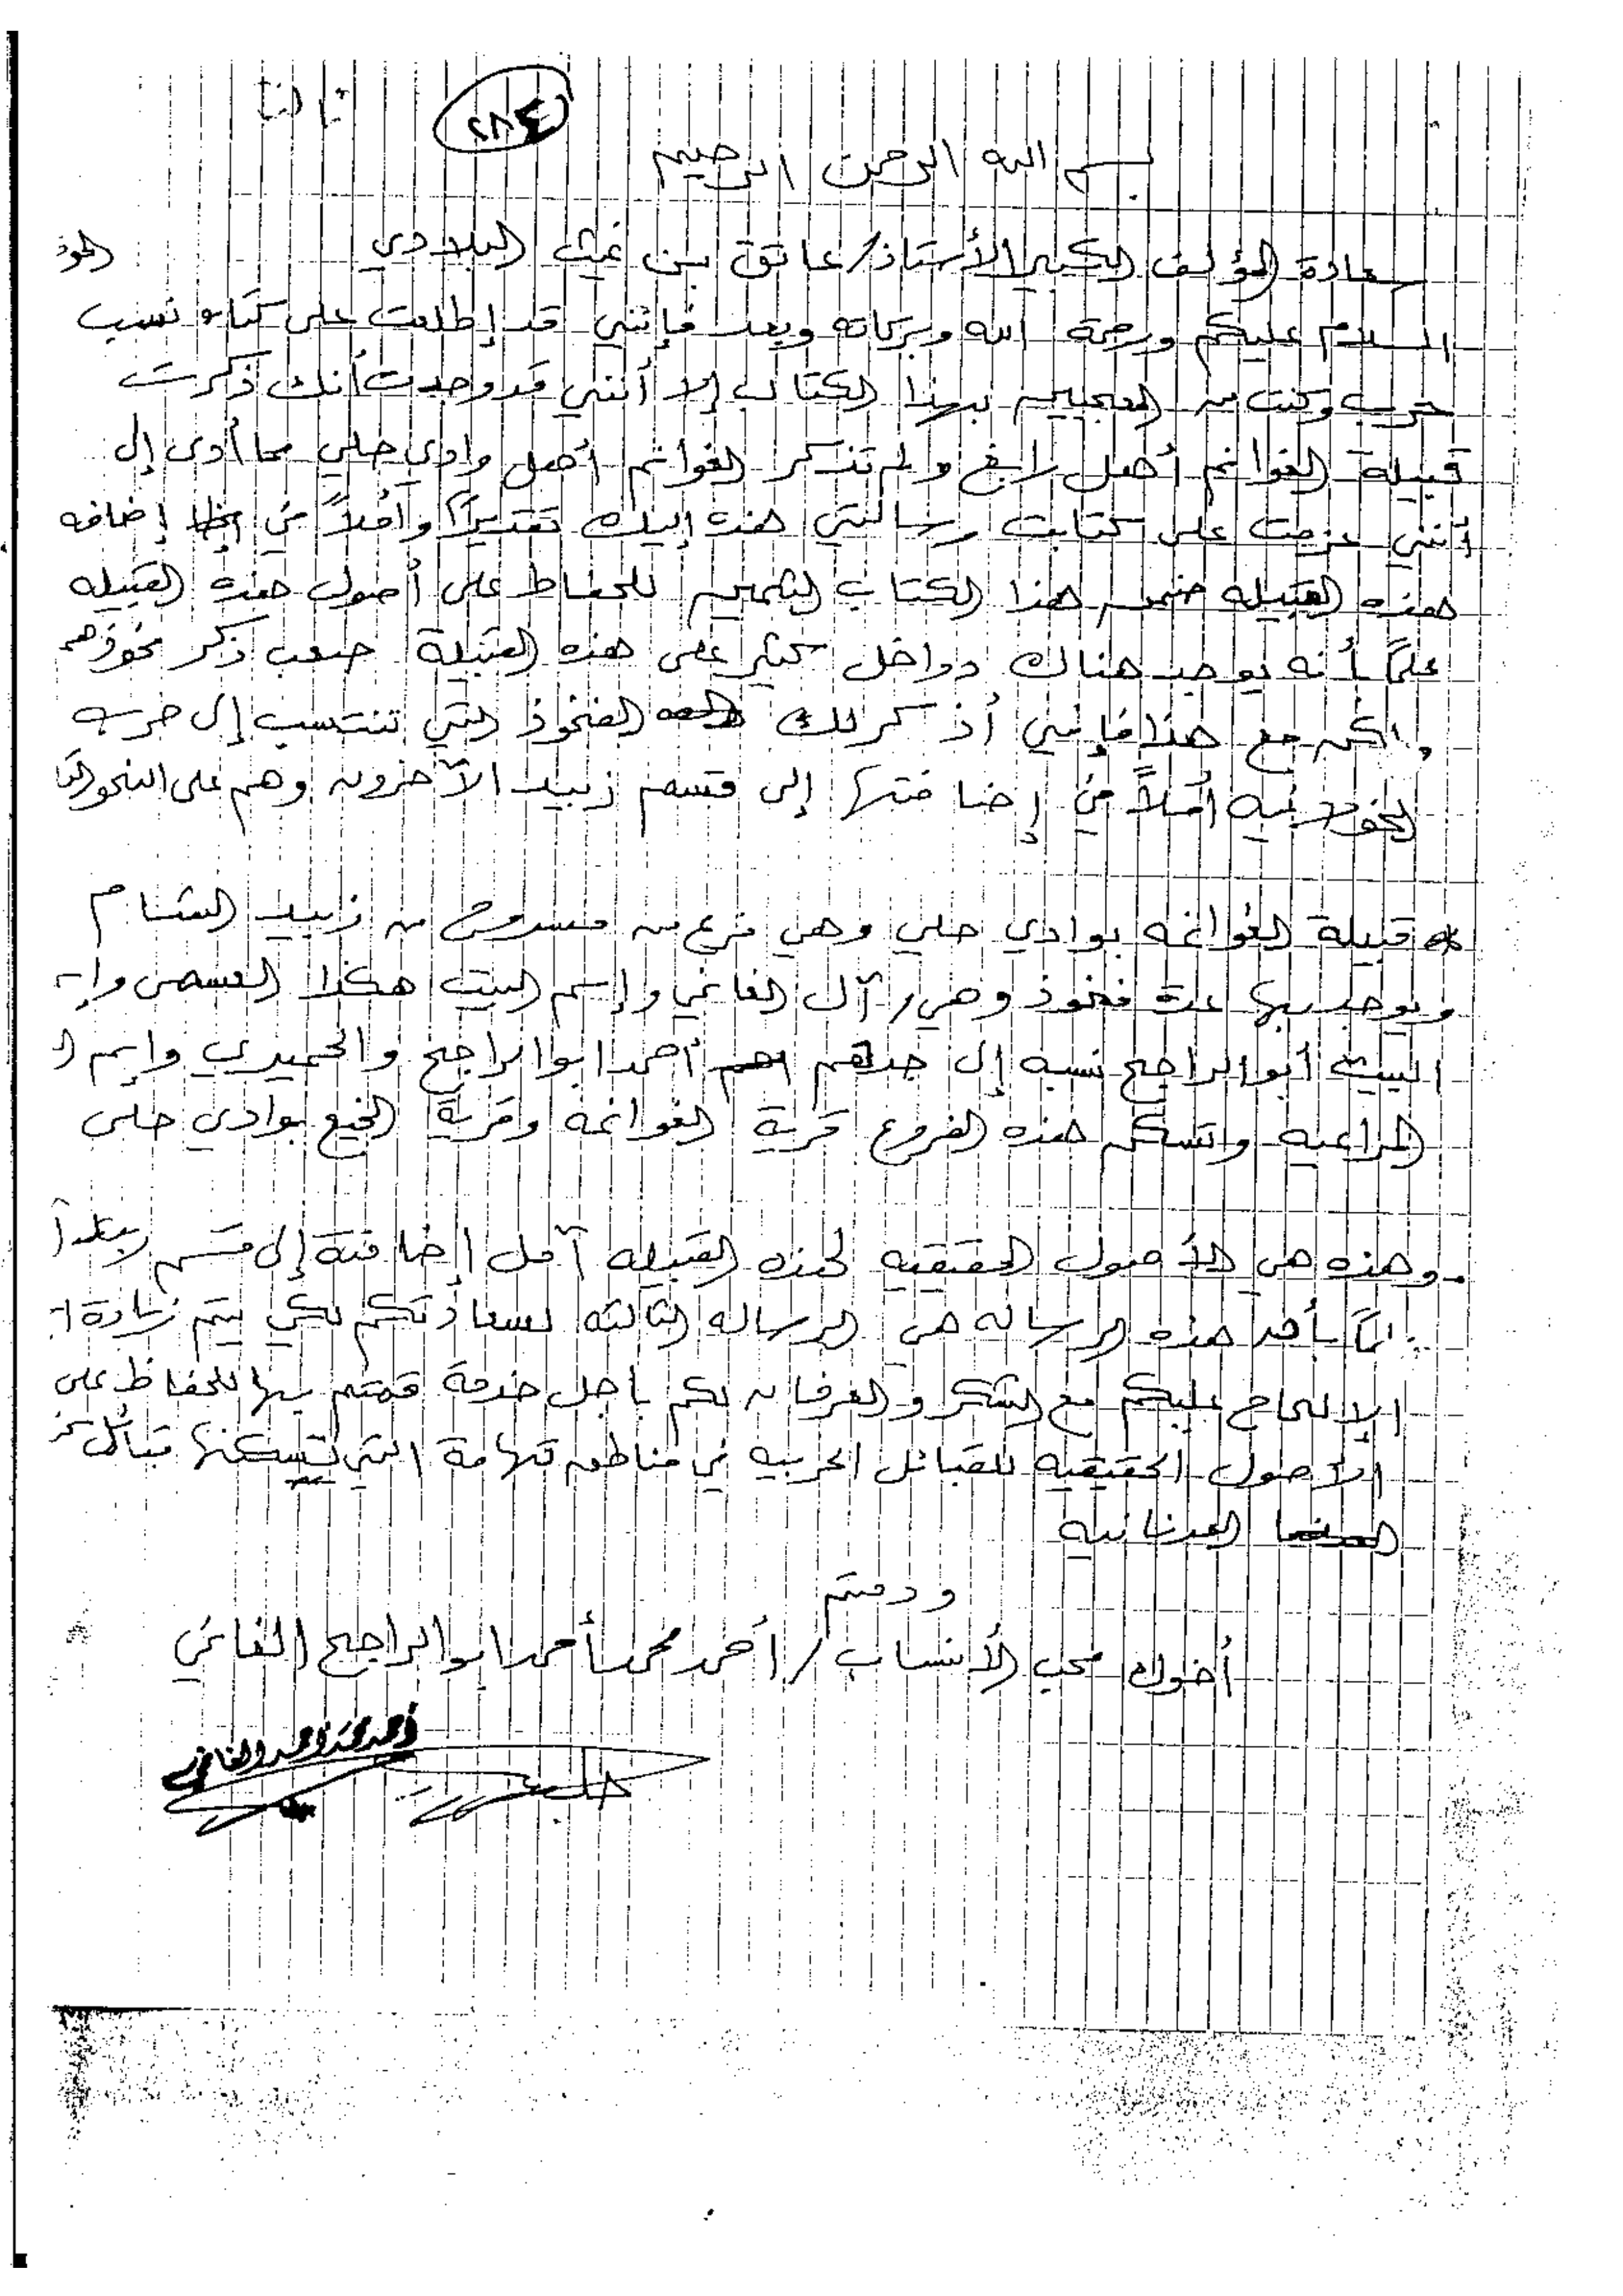 ٢٨٤
بسم الله الرحمن الرحيم
سعادة المؤلف الكبير الأستاذ/ عاتق بن غيث البلادي
السلام عليكم ورحمة الله وبركاته وبعد فإنني قد إطلعت على كتاب نسب
حرب وكنت من المعجبين بهذا الكتاب إلا أنني قد وجدت أنك ذكرت
قبيلة الغوانم أهل رابغ ولم تذكر الغوانم أهل وادي حلي مما أدى إلى
أنني عزمت على كتابت رسالتي هذه إليك تقديراً وأملاً في إضافه
هذه القبيله ضمن هذا الكتاب الثمين للحفاظ على أصول هذه القبيله
علماً أنه يوجد هناك دواخل كثير على هذه القبيلة صعب ذكر فخوذهم
ولكن مع هذا فإنني أذكر لك الفخوذ التي تنتسب إلى حرب
أملاً في إضافتها إلى قسم زبيد الآخرون وهم على النحو
قبيلة الغوانمه بوادي حلي وهي فرع من مسروح من زبيد الشام
ويوجد بها عدة فخوذ وهي/ آل الغانمي وإسم البيت هكذا
البيت أبو الراجح نسبه إلى جدهم أحمد ابو الراجح والحميدي وإسم
المراعيه وتسكن هذه الفروع قرية الغوانمه وقرية بوادي حلي
وهذه هي الأصول الحقيقيه لهذه القبيله آمل إضافته إلى قسم
بأن هذه الرساله هي الرساله الثالثه لسعادتكم لكي يتم زيادة
الإلحاح عليكم مع الشكر والعرفان لكم بأجل خدمة قمتم بها للحفاظ على
الأصول الحقيقيه للقبائل الحربيه في مناطق تهامة التي تسكنها قبائل
العدنانيه
ودمتم
أخوك محب الأنساب/ أحمد محمد أحمد ابو الراجح الغانمي
أحمد محمد أحمد الغانمي